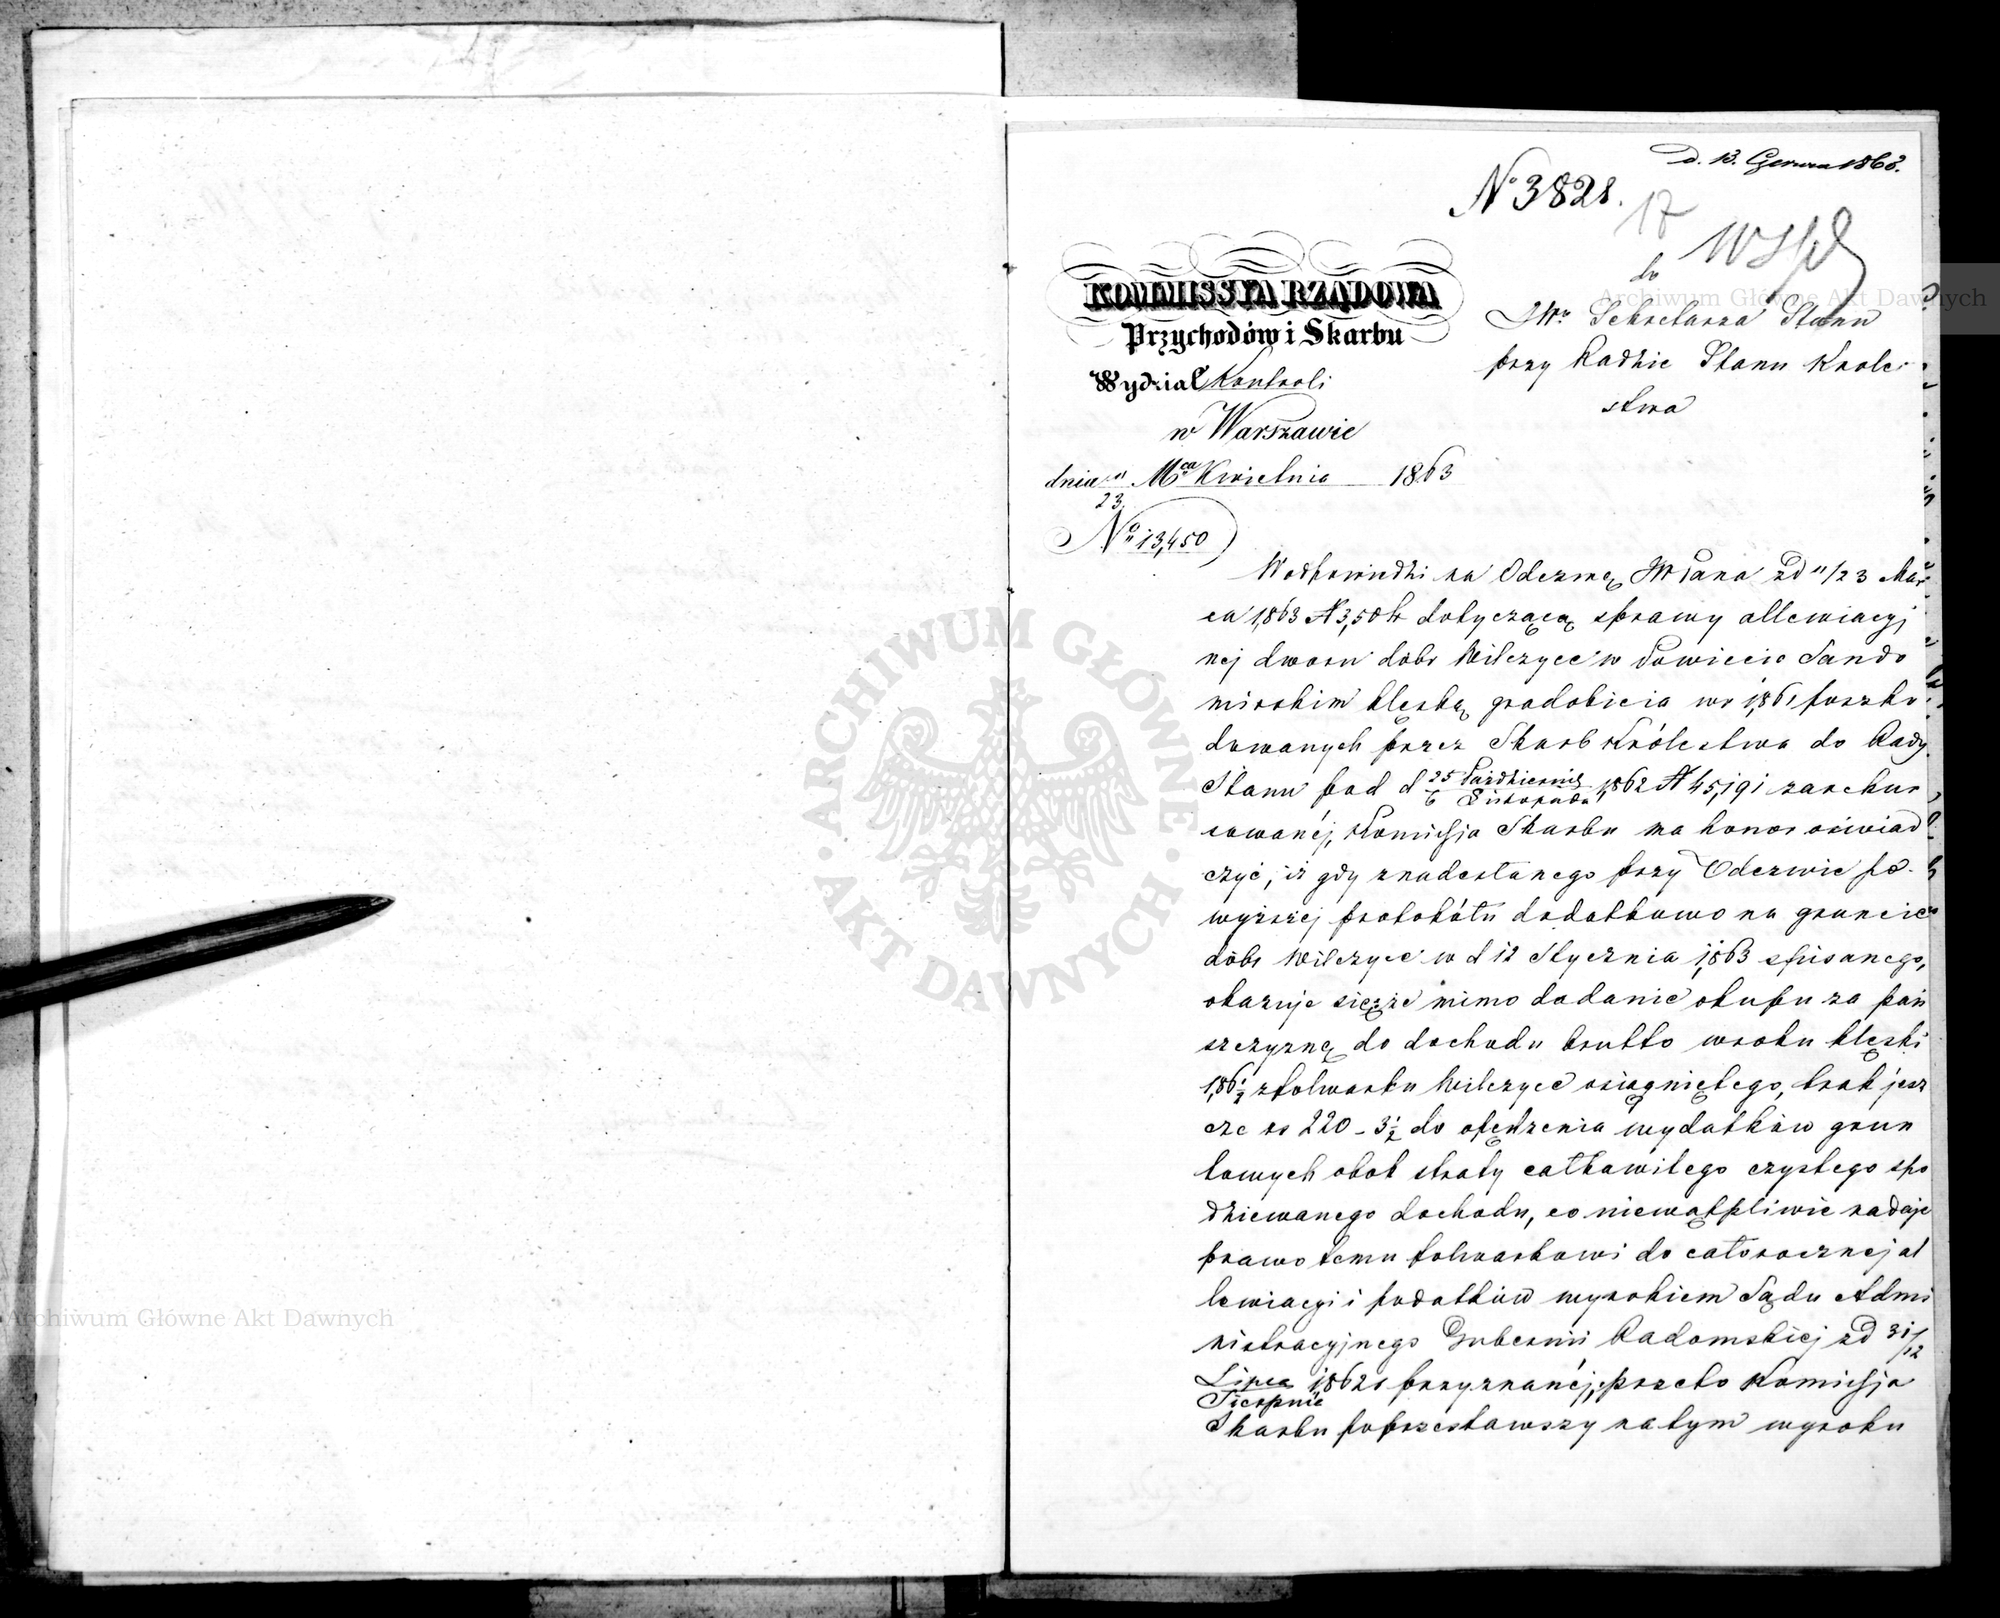 d. 13. Czerwca 1863.
No 3828.
17
KOMMISSYA RZĄDOWA
Przychodów i Skarbu
Wydział Kontroli
w Warszawie
dnia 11/23 Mca Kwietnia 1863
No 13,450
do
JWo Sekretarza Stanu
przy Radzie Stanu Króle
stwa
W odpowiedzi na Odezwę JWPana z d 11/23 Mar
ca 1863 N 3,504 dotyczącą sprawy allewiacyj
nej dworu dóbr Wilczyce w Powiecie Sando
mirskim klęską gradobicia w r 1861 poszko
dowanych przez Skarb Królestwa do Rady
Stanu pod d 25 Października/6 Listopada 1862 N 45,191 zarekur
sowanéj, Komissja Skarbu ma honor oświad
czyć, iż gdy z nadesłanego przy Odezwie po
wyższej protokółu dodatkowo na gruncie
dóbr Wilczyce w d 12 Stycznia 1863 spisanego,
okazuje się, że mimo dodanie okupu za pań
szczyznę do dochodu brutto w roku klęski
186 1/2 z folwarku Wilczyce osiągniętego, brak jesz
cze rs 220 - 3 1/2 do opędzenia wydatków grun
towych obok straty całkowitego czystego spo
dziewanego dochodu, co niewątpliwie nadaje
prawo temu folwarkowi do całorocznej al
lewiacyi i podatków wyrokiem Sądu Admi
nistracyjnego Gubernii Radomskiej z d 31/12
Lipca/Sierpnia 1862 r przyznanéj, przeto Komissja
Skarbu poprzestawszy na tym wyroku
ARCHIWUM GŁÓWNE
AKT DAWNYCH
Archiwum Główne Akt Dawnych
Archiwum Główne Akt Dawnych